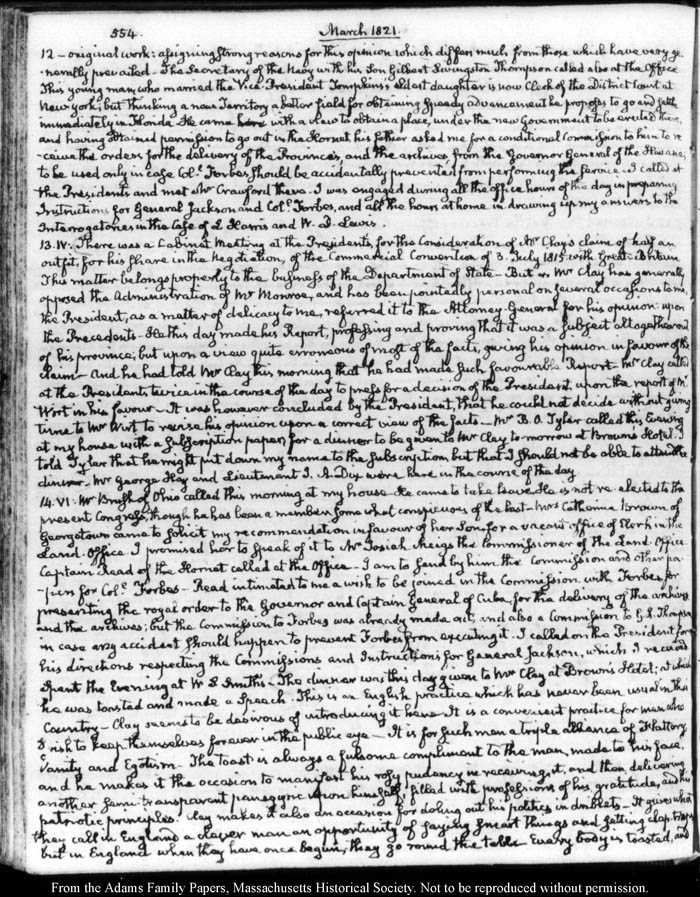 554.
March 1821.
12 – original work: assigning strong reasons for this opinion which differ much from those which have very ge-
nerally prevailed – The Secretary of the Navy with his Son Gilbert Livingston Thompson called also at the Office
This young man who married the Vice-President Tompkins's eldest daughter is now Clerk of the District Court at
New York; but thinking a new Territory a better field for obtaining speedy advancement he proposes to go and settle
immediately in Florida. He came here with a view to obtain a place, under the new Government to be erected there,
and having obtained permission to go out in the Hornet his father asked me for a conditional Commission to him to re-
ceive the orders for the delivery of the Provinces, and the archives, from the Governor General of the Havanna;
to be used only in case Colo. Forbes should be accidentally prevented from performing the service – I called at
the Presidents and met Mr Crawford there. I was engaged during all the office hours of the day in preparing
Instructions for General Jackson and Colo. Forbes, and all the hours at home in drawing up my answers to the
Interrogatories in the Case of L Harris and W. D. Lewis.
13. IV. There was a Cabinet Meeting at the Presidents, for the Consideration of Mr Clay's claim of half an
outfit, for his share in the Negotiation, of the Commercial Convention of 3. July 1815 with Great-Britain
This matter belongs properly to the business of the Department of State – But as Mr Clay has generally
opposed the Administration of Mr Monroe, and has been pointedly personal on several occasions to me,
the President, as a matter of delicacy to me, referred it to the Attorney General for his opinion upon
the Precedents – He this day made his Report, professing and proving that it was a subject altogether out
of his province; but upon a view quite erroneous of most of the facts, giving his opinion in favour of the
claim – And he had told Mr Clay this morning that he had made such favourable Report – Mr Clay called
at the Presidents twice in the course of the day to press for a decision of the President, upon the report of Mr
Wirt in his favour – It was however concluded by the President, that he could not decide without giving
time to Mr Wirt to revise his opinion upon a correct view of the facts – Mr B. O. Tyler called this Evening
at my house with a subscription paper for a dinner to be given to Mr Clay to-morrow at Brown's Hotel. I
told Tyler that he might put down my name to the subscription but that I should not be able to attend the
dinner – Mr George Hay and Lieutenant J. A. Dix were here in the course of the day
14. VI. Mr Brush of Ohio called this morning at my house. He came to take leave. He is not re-elected to the
present Congress, though he has been a member somewhat conspicuous of the last – Mrs Catherine Brown of
Georgetown came to solicit my recommendation in favour of her Son for a vacant office of Clerk in the
Land-Office. I promised her to speak of it to Mr Josiah Meigs the Commissioner of the Land-Office
Captain Read of the Hornet called at the Office – I am to send by him the Commission and other pa-
pers for Colo. Forbes – Read intimated to me a wish to be joined in the Commission with Forbes, for
presenting the royal order to the Governor and Captain General of Cuba, for the delivery of the archives
and the archives; but the Commission to Forbes was already made out, and also a Commission to G. L. Thompson
in case any accident should happen to prevent Forbes from executing it. I called on the President for
his directions respecting the Commissions and Instructions for General Jackson, which I received
Spent the Evening at W S Smith's – The dinner was this day given to Mr Clay at Brown's Hotel; at which
he was toasted and made a speech. This is an English practice which has never been usual in this
Country – Clay seems to be desirous of introducing it here. It is a convenient practice for men who
wish to keep themselves forever in the public eye – It is for such men a triple alliance of Flattery
Vanity and Egotism. The toast is always a fulsome compliment to the man, made to his face,
and he makes it the occasion to manifest his rosy pudency in receiving it, and then delivering
another semi-transparent panegyric upon himself filled with professions of his gratitude, and his
patriotic principles. Clay makes it also an occasion for doling out his politics in driblets – It gives what
they call in England a clever man an opportunity of saying smart things and getting clap-traps
but in England when they have once begun, they go round the table. Every body is toasted, and
From the Adams Family Papers, Massachusetts Historical Society. Not to be reproduced without permission.